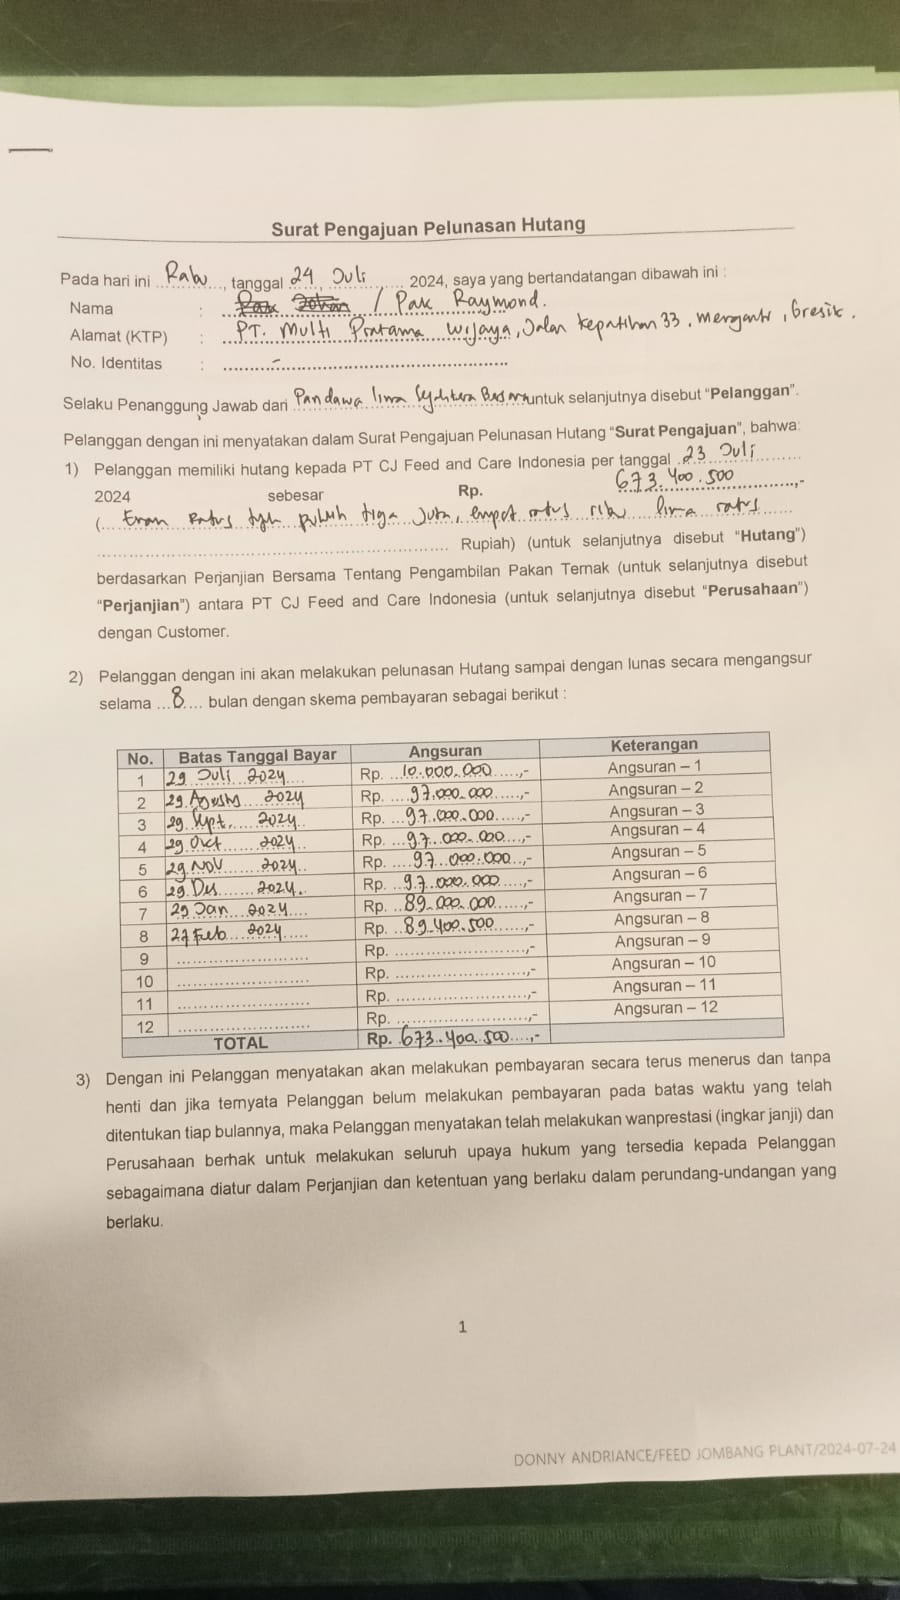 Surat Pengajuan Pelunasan Hutang
Pada hari ini Rabu, tanggal 24 Juli 2024, saya yang bertandatangan dibawah ini :
Nama : / Pak Raymond.
Alamat (KTP) : PT. Multi Pratama Wijaya, Jalan kepatihan 33, menganti, Gresik.
No. Identitas : -
Selaku Penanggung Jawab dari Pandawa lima untuk selanjutnya disebut “Pelanggan”.
Pelanggan dengan ini menyatakan dalam Surat Pengajuan Pelunasan Hutang “Surat Pengajuan”, bahwa:
1) Pelanggan memiliki hutang kepada PT CJ Feed and Care Indonesia per tanggal 23 Juli
2024 sebesar Rp. 673.400.500,-
( Enam Ratus tujuh puluh tiga Juta, empat ratus ribu lima ratus
Rupiah) (untuk selanjutnya disebut “Hutang”)
berdasarkan Perjanjian Bersama Tentang Pengambilan Pakan Ternak (untuk selanjutnya disebut
“Perjanjian”) antara PT CJ Feed and Care Indonesia (untuk selanjutnya disebut “Perusahaan”)
dengan Customer.
2) Pelanggan dengan ini akan melakukan pelunasan Hutang sampai dengan lunas secara mengangsur
selama ...8.... bulan dengan skema pembayaran sebagai berikut :
No. Batas Tanggal Bayar Angsuran Keterangan
1 29 Juli 2024 Rp. 10.000.000,- Angsuran – 1
2 29 Agustus 2024 Rp. 97.000.000,- Angsuran – 2
3 29 Sept. 2024 Rp. 97.000.000,- Angsuran – 3
4 29 Okt 2024 Rp. 97.000.000,- Angsuran – 4
5 29 NOV 2024 Rp. 97.000.000,- Angsuran – 5
6 29 Des 2024. Rp. 97.000.000,- Angsuran – 6
7 29 Jan 2024 Rp. 89.000.000,- Angsuran – 7
8 27 Feb 2024 Rp. 89.400.500,- Angsuran – 8
9 Rp. ,- Angsuran – 9
10 Rp. ,- Angsuran – 10
11 Rp. ,- Angsuran – 11
12 Rp. ,- Angsuran – 12
TOTAL Rp. 673.400.500,-
3) Dengan ini Pelanggan menyatakan akan melakukan pembayaran secara terus menerus dan tanpa
henti dan jika ternyata Pelanggan belum melakukan pembayaran pada batas waktu yang telah
ditentukan tiap bulannya, maka Pelanggan menyatakan telah melakukan wanprestasi (ingkar janji) dan
Perusahaan berhak untuk melakukan seluruh upaya hukum yang tersedia kepada Pelanggan
sebagaimana diatur dalam Perjanjian dan ketentuan yang berlaku dalam perundang-undangan yang
berlaku.
1
DONNY ANDRIANCE/FEED JOMBANG PLANT/2024-07-24